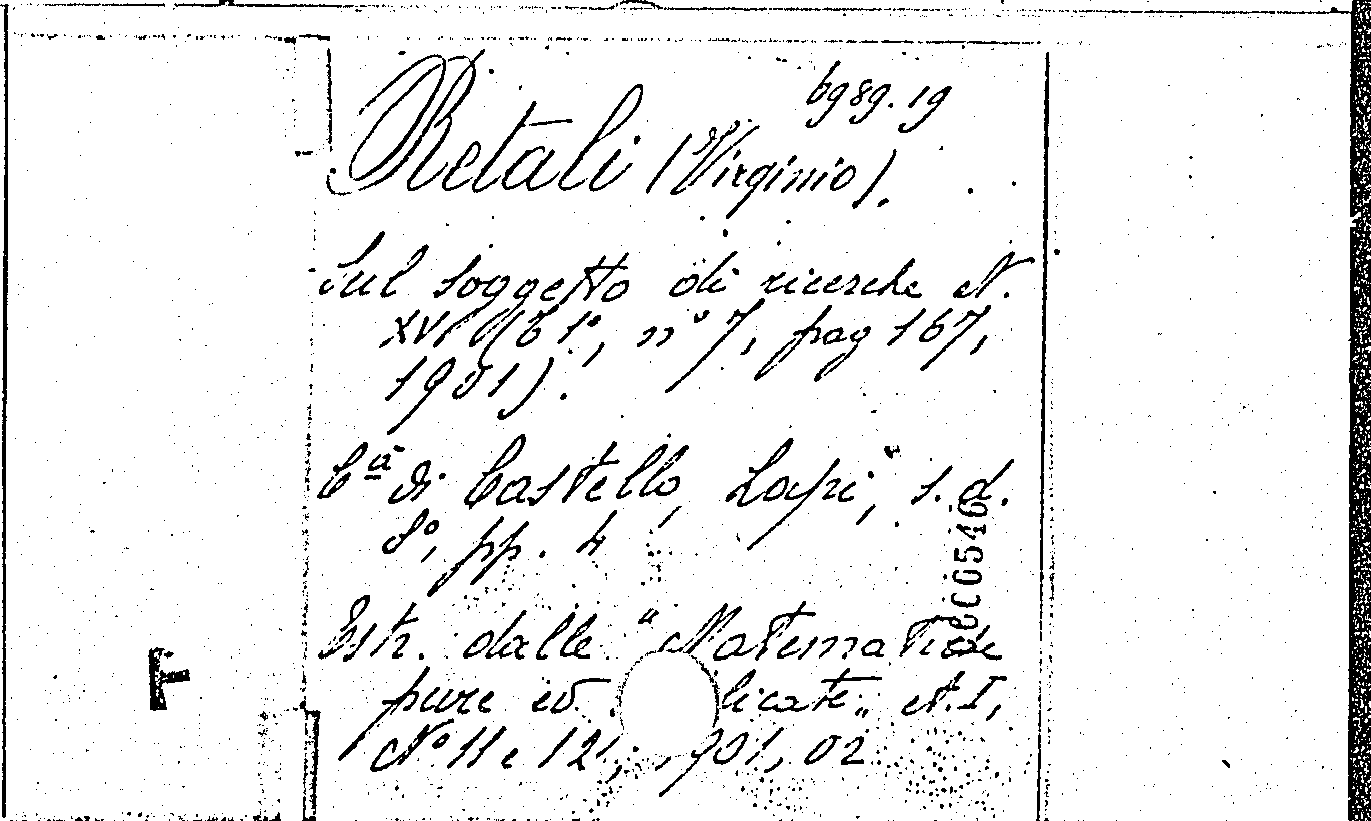 6989.19
Retali (Virginio).
Sul soggetto di ricerche N.
XVI (T 1°, n° 7, pag 167,
1901).
C.à di Castello, Lapi, s.d.
8°, pp. 4
Estr. dalle "Matematiche
pure ed licate„ A.I,
N° 11 e 12, 901, 02
F